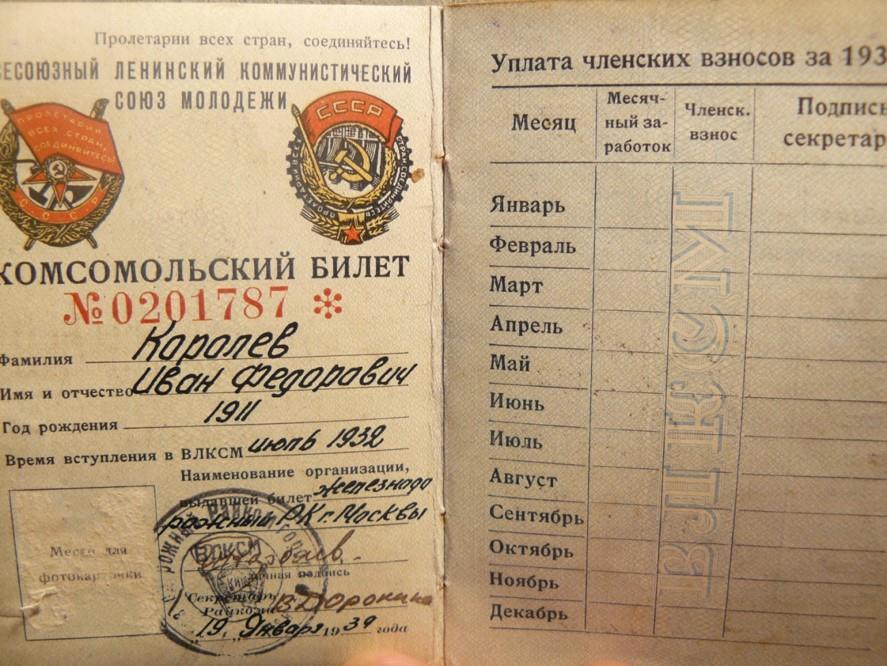 Пролетарии всех стран, соединяйтесь!
ВСЕСОЮЗНЫЙ ЛЕНИНСКИЙ КОММУНИСТИЧЕСКИЙ
СОЮЗ МОЛОДЕЖИ
ПРОЛЕТАРИИ
ВСЕХ СТРАН,
СОЕДИНЯЙТЕСЬ!
СССР
СССР
КОМСОМОЛЬСКИЙ БИЛЕТ
№0201787
Фамилия Королев
Имя и отчество Иван Федорович
Год рождения 1911
Время вступления в ВЛКСМ июль 1932
Наименование организации,
выдавшей билет железнодо
рожный РК г. Москвы
Место для
фотокарточки
ВЛКСМ
Личная подпись
Секретарь
Райкома В Доронина
"19" Января 1939 года
Уплата членских взносов за 193
Месяц
Месяч-
ный за-
работок
Членск.
взнос
Подпись
секретар
Январь
Февраль
Март
Апрель
Май
Июнь
Июль
Август
Сентябрь
Октябрь
Ноябрь
Декабрь
ВЛКСМ